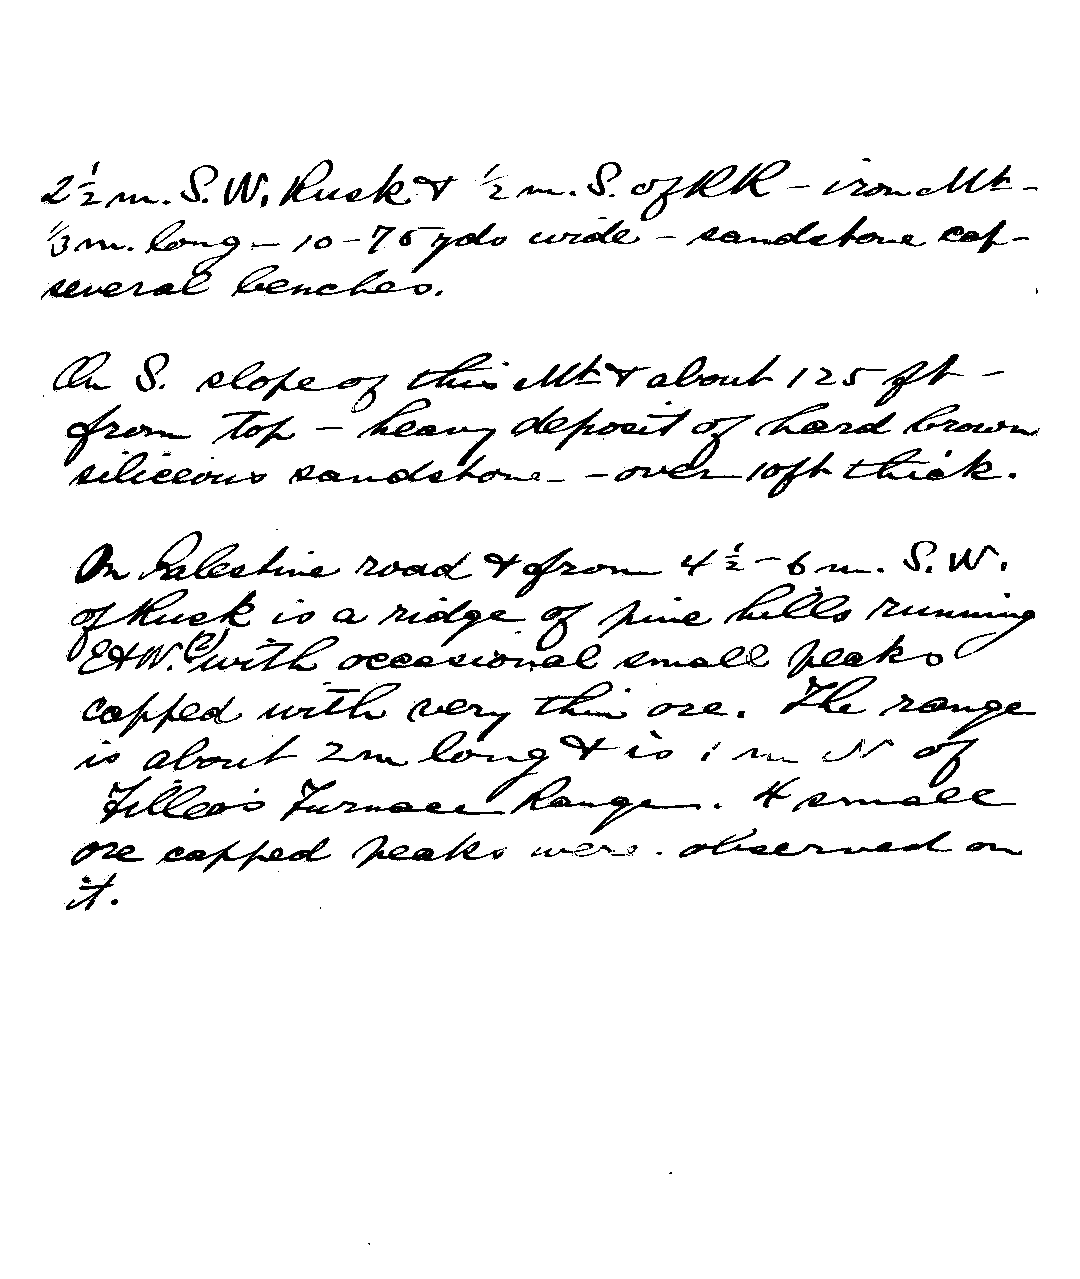 2½ m. S.W. Rusk & ½ m. S. of RR – iron Mt –
⅓ m. long – 10–75 yds wide – sandstone cap –
several benches.
On S. slope of this Mt & about 125 ft –
from top – heavy deposit of hard brown
siliceous sandstone – – over 10 ft thick.
On Palestine road & from 4½ – 6 m. S.W.
of Rusk is a ridge of pine hills running
E & W. (?) with occasional small peaks
capped with very thin ore. The range
is about 2 m long & is 1 m N of
Furnace Range. 4 small
ore capped peaks were observed on
it.